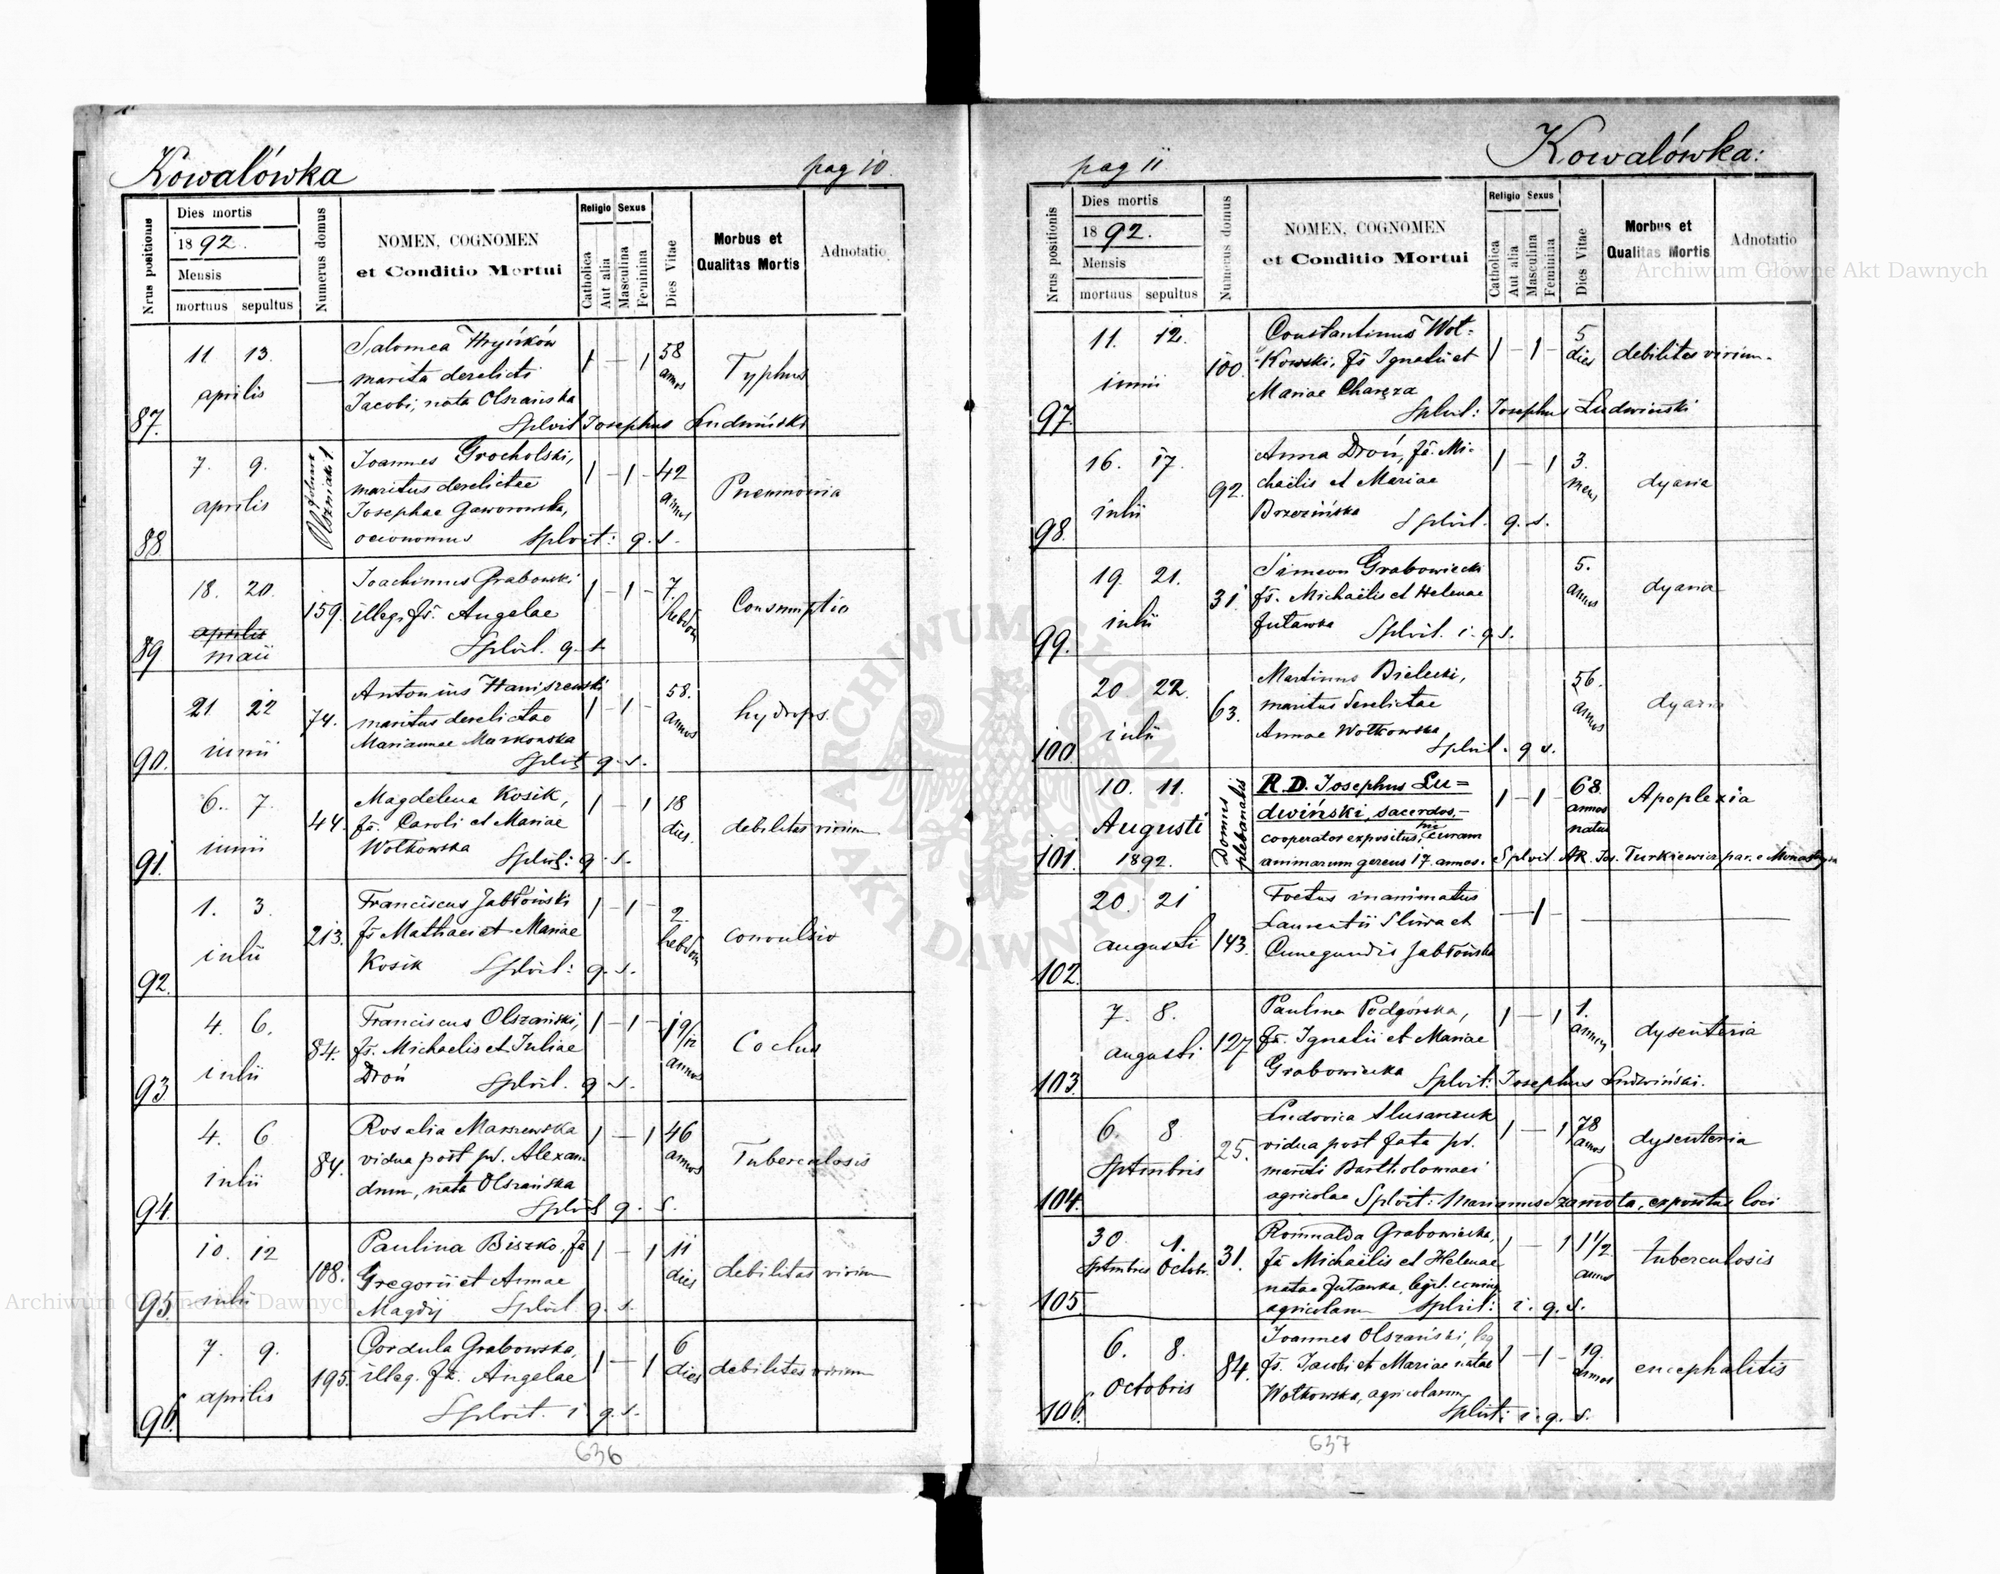 Kowalówka
pag 10.
Nrus positionis
Dies mortis
1892.
Mensis
mortuus sepultus
Numerus domus
NOMEN, COGNOMEN
et Conditio Mortui
Religio Sexus
Catholica
Aut alia
Masculina
Feminina
Dies Vitae
Morbus et
Qualitas Mortis
Adnotatio
87.
11 13.
aprilis
—
Salomea
marita derelicti
Jacobi, nata Olszańska
Splvit Josephus Ludwiński
1 — 1
58
annos
Typhus
88
7. 9.
aprilis
Joannes Grocholski,
maritus derelictae
Josephae Gaworowska,
oeconomus Splvit: q. s.
1 — 1 —
42
annos
Pneumonia
89
18. 20.
aprilis
maii
159.
Joachimus Grabowski
illeg. fs. Angelae
Splvit. q. s.
1 — 1 —
7.
hebdom
Consumptio
90.
21 22
iunii
74.
Antonius Haniszewski
maritus derelictae
Mariannae Markowska
Splvit q. s.
1 — 1 —
58.
annos
hydrops.
91.
6. 7.
iunii
44.
Magdelena Kosik,
fa. Caroli et Mariae
Wołkowska Splvit: q. s.
1 — 1
18
dies.
debilitas virium
92.
1. 3.
iulii
213.
Franciscus Jabłoński
fs Mathaei et Mariae
Kosik Splvit: q. s.
1 — 1 —
2.
hebdom
convulsio
93
4. 6.
iulii
84.
Franciscus Olszański,
fs. Michaelis et Juliae
Droń Splvit. q. s.
1 — 1 —
1 9/12
annos
94.
4. 6
iulii
84.
Rosalia Marszewska
vidua post pd. Alexan
drum, nata Olszańska
Splvit q. s.
1 — 1
46
annos
Tuberculosis
95.
10. 12
iulii
108.
Paulina Biszko, fa
Gregorii et Annae
Magdij Splvit. q. s.
1 — 1
11
dies
debilitas virium
96.
7. 9.
aprilis
195.
Cordula Grabowska,
illeg. fa. Angelae
Splvit. i. q. s.
1 — 1
6
dies
debilitas virium
636
pag 11.
Kowalówka:
Nrus positionis
Dies mortis
1892.
Mensis
mortuus sepultus
Numerus domus
NOMEN, COGNOMEN
et Conditio Mortui
Religio Sexus
Catholica
Aut alia
Masculina
Feminina
Dies Vitae
Morbus et
Qualitas Mortis
Adnotatio
97.
11. 12.
iunii
100.
Constantinus Woł=
kowski, fs Ignatii et
Mariae Charęza
Splvit: Josephus Ludwiński
1 — 1 —
5
dies
debilitas virium.
98.
16. 17.
iulii
92.
Anna Droń, fa. Mi-
chaëlis et Mariae
Brzezińska Splvit. q. s.
1 — 1
3.
mens
dyaria
99.
19. 21.
iulii
31.
Simeon Grabowiecki
fs. Michaëlis et Helenae
Jutawka Splvit. i. q. s.
5.
annos
dyaria
100.
20. 22.
iulii
63.
Martinus Bielecki,
maritus derelictae
Annae Wołkowska
Splvit. q s.
56.
annos
dyaria
101.
10. 11.
Augusti
1892.
Domus
plebanalis
R. D. Josephus Lu=
dwiński, sacerdos,
cooperator expositus, hic curam
animarum gerens 17. annos. Splvit. AR. Jos. Turkiewicz par. e Monasterzyska
1 — 1 —
68.
annos
natus
Apoplexia
102.
20. 21
augusti
143.
Foetus inanimatus
Laurentii Sliwa et
Cunegundis Jabłońska
— 1 —
103.
7. 8.
augusti
127
Paulina Podgórska,
fa. Ignatii et Mariae
Grabowiecka Splvit: Josephus Ludwiński.
1 — 1
1.
dysenteria
104.
6. 8
Sptmbris
25.
Ludovica Slusarczuk
vidua post fata pd.
mariti Bartholomaei
agricolae Splvit: Marianus Szamota, expositus loci
1 — 1
78
annos
dysenteria
105.
30. 1.
Sptmbris Octobr.
31.
Romualda Grabowiecka,
fa Michaëlis et Helenae
natae Jutawka,
agricolarum Splvit: i. q. s.
1 — 1
1 1/2
annos
tuberculosis
106.
6. 8.
Octobris
84.
Joannes Olszański,
fs. Jacobi et Mariae natae
Wołkowska, agricolarum
Splvit: i. q. s.
1 — 1 —
19.
annos
encephalitis
637
Archiwum Główne Akt Dawnych
Archiwum Główne Akt Dawnych
ARCHIWUM GŁÓWNE
AKT DAWNYCH